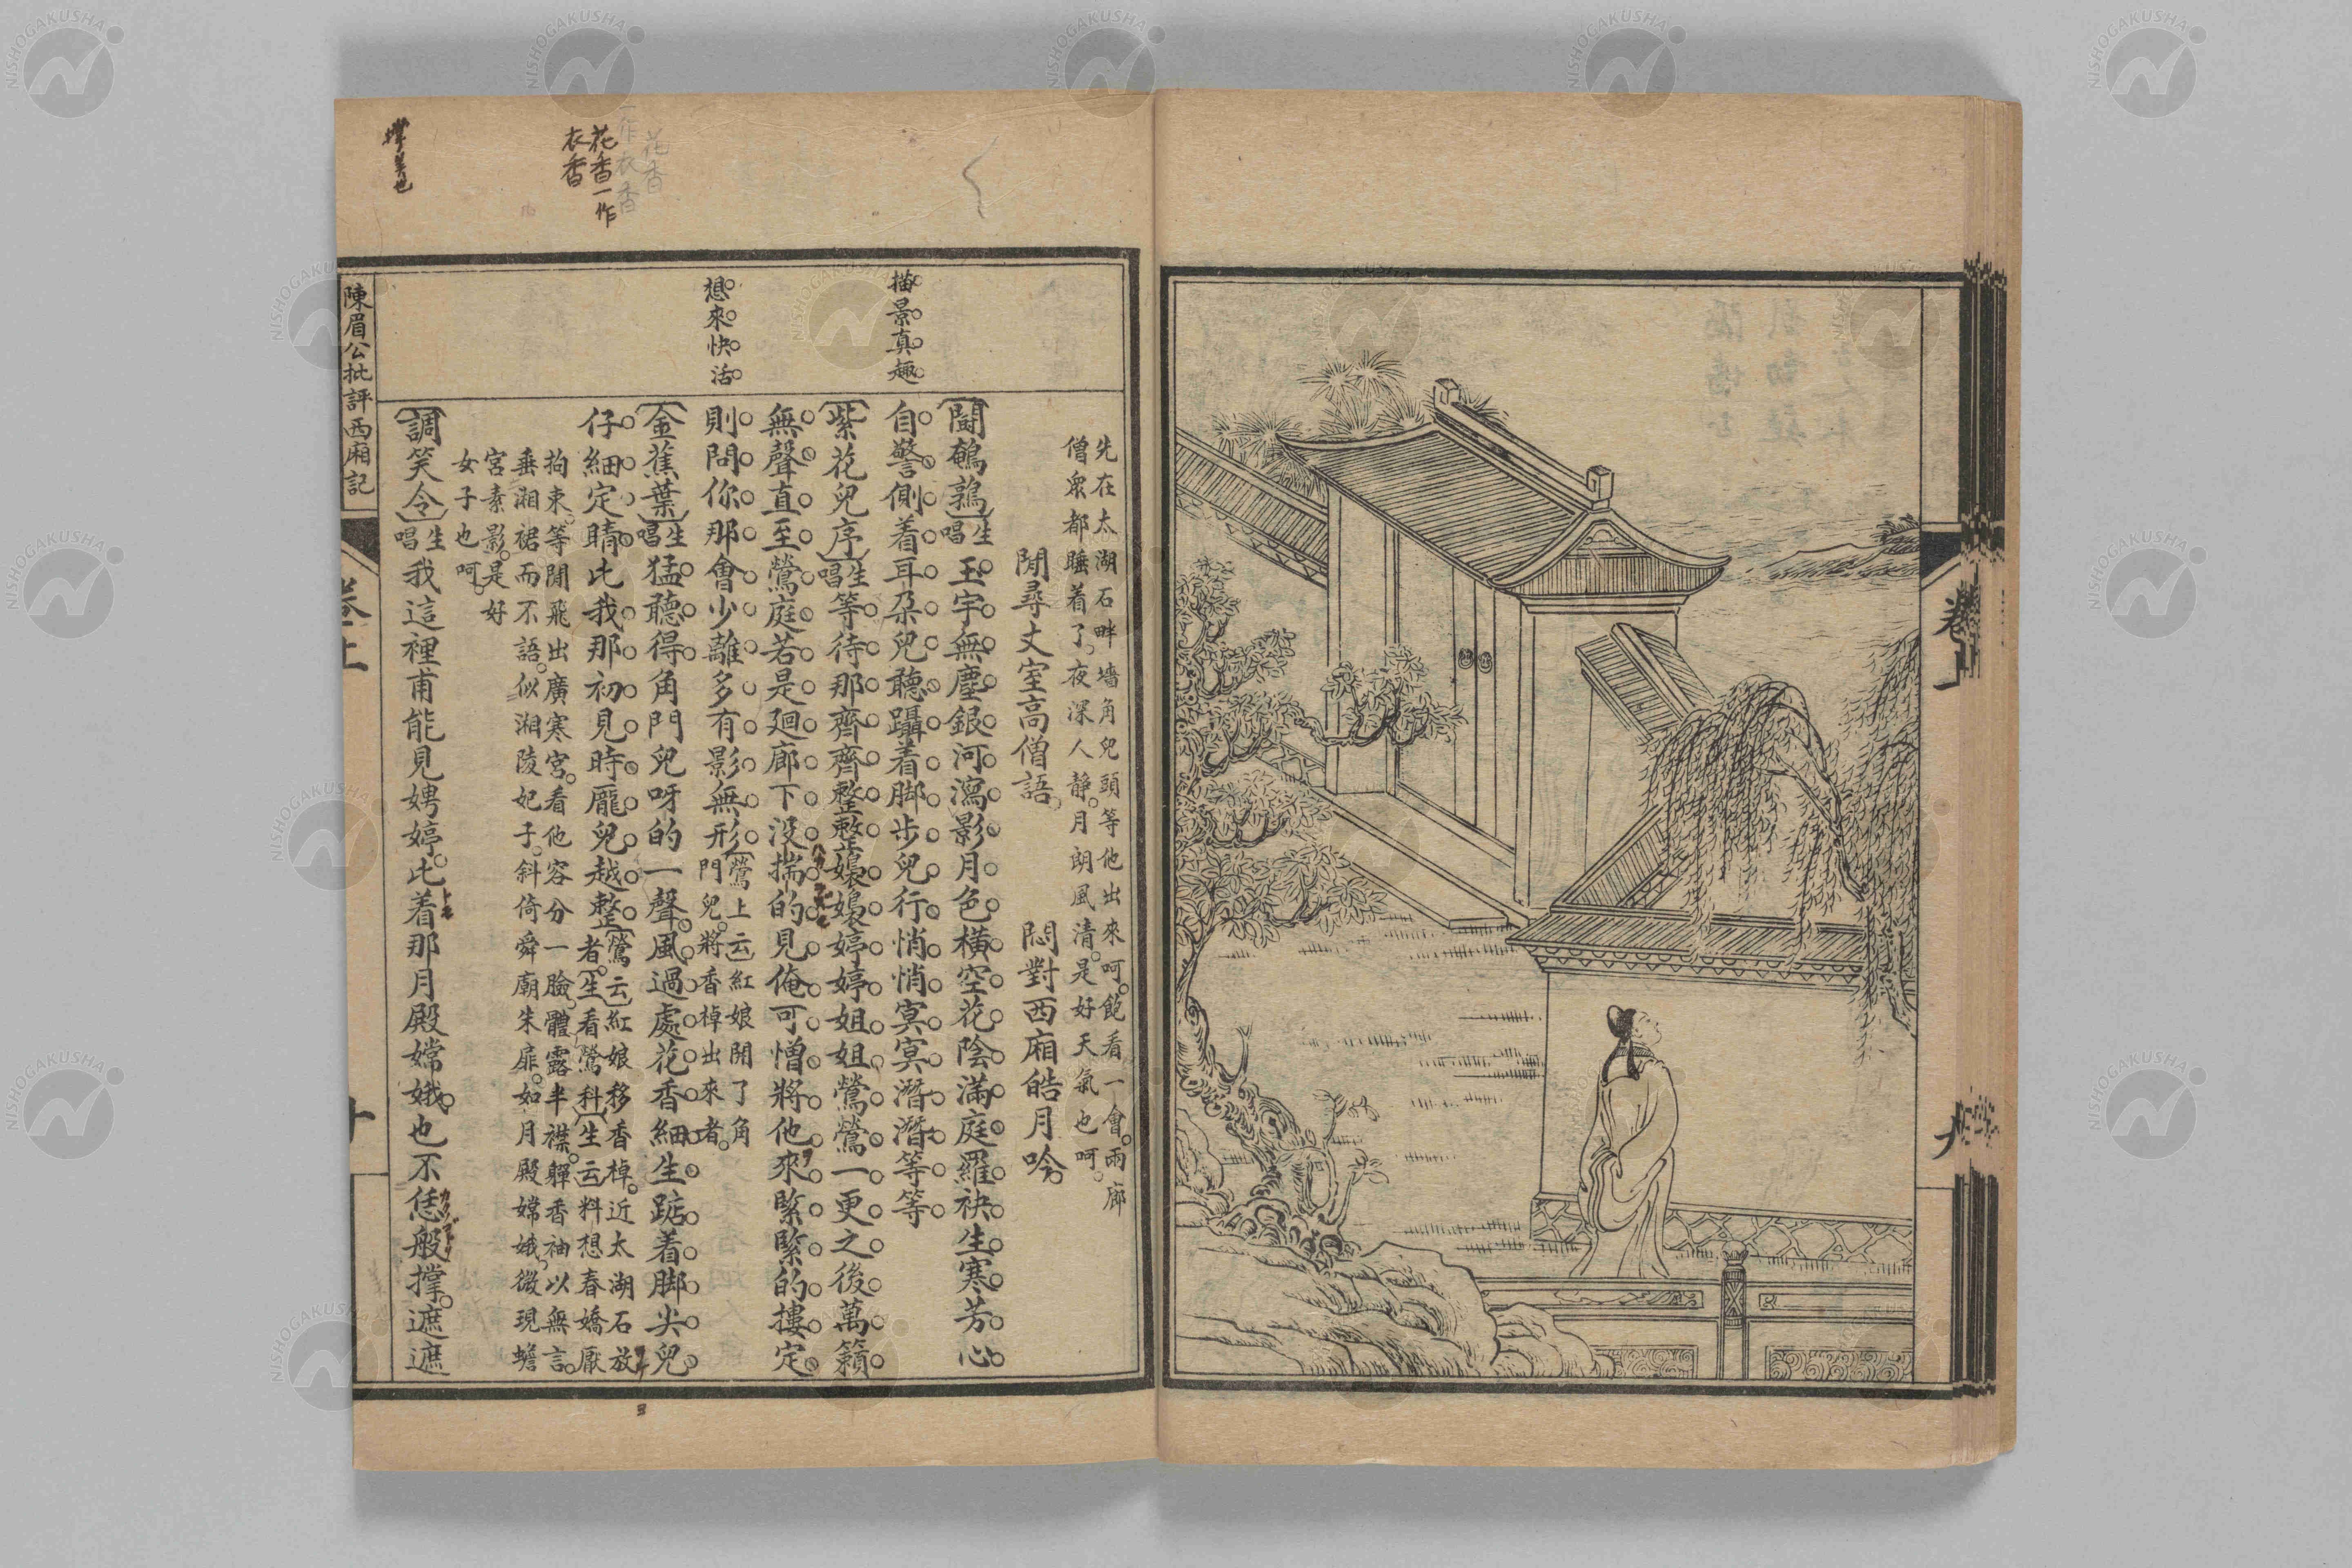 卷上
九
先在太湖石畔墻角兒頭等他出來呵。飽看一會。兩廊
僧衆都睡着了。夜深人靜。月朗風清。是好天氣也呵。
閒尋丈室高僧語。悶對西廂皓月吟。
描景真趣
【鬪鵪鶉】生唱玉宇無塵銀河瀉影月色橫空花陰滿庭羅袂生寒芳心
自警側着耳朶兒聽躡着脚步兒行悄悄冥冥潛潛等等
【紫花兒序】生唱等待那齊齊整整嬝嬝婷婷姐姐鶯鶯一更之後萬籟
無聲直至鶯庭若是廻廊下没揣的見俺可憎將他來緊緊的摟定
想來快活
則問你那會少離多有影無形【鶯上云】紅娘開了角
門兒。將香棹出來者。
【金蕉葉】生唱猛聽得角門兒呀的一聲。風過處花香細生踮着脚尖兒
仔細定睛比我那初見時龐兒越整【鶯云】紅娘移香棹。近太湖石放
者。【生看鶯科】【生云】料想春嬌厭
拘束。等閒飛出廣寒宮。看他容分一臉。體露半襟。軃香袖以無言。
垂湘裙而不語。似湘陵妃子。斜倚舜廟朱扉。如月殿嫦娥。微現蟾
宮素影。是好
女子也呵。
【調笑令】生唱我這裡甫能見娉婷。比着那月殿嫦娥。也不恁般撑。遮遮
陳眉公批評西廂記
卷上
十
花香一作
衣香
花香
一作衣香
撑美也
NISHOGAKUSHA